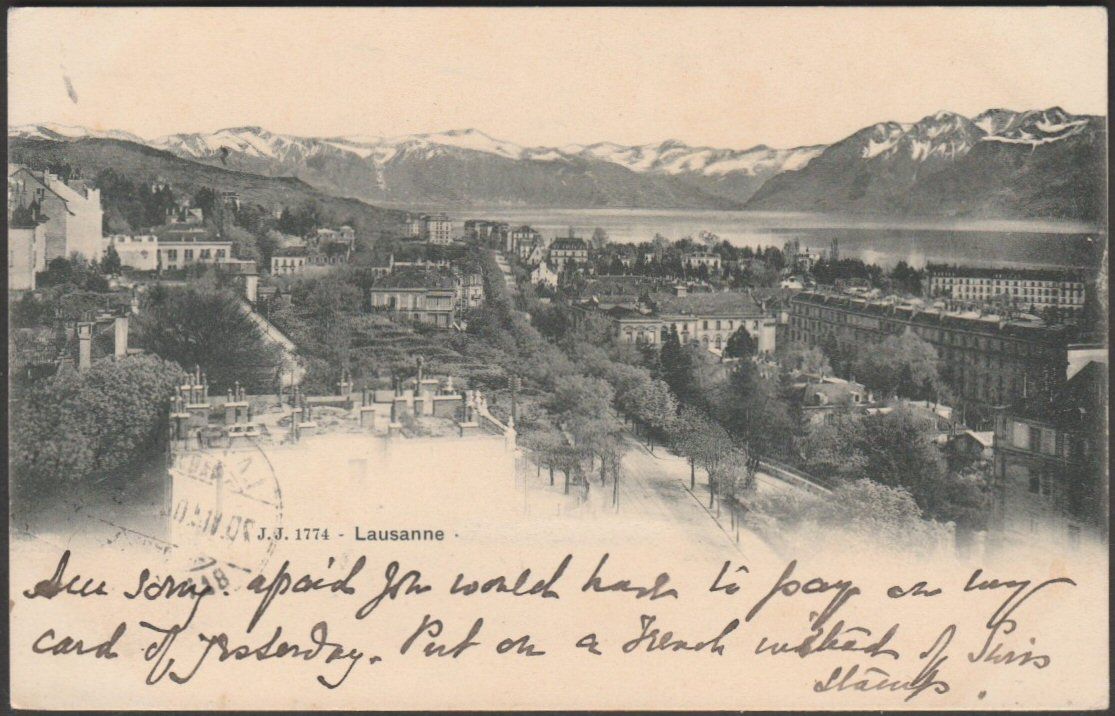 J.J. 1774 - Lausanne .
Am sorry. afraid you would have to pay on my
card of yesterday. Put on a French instead of Swiss
stamps.